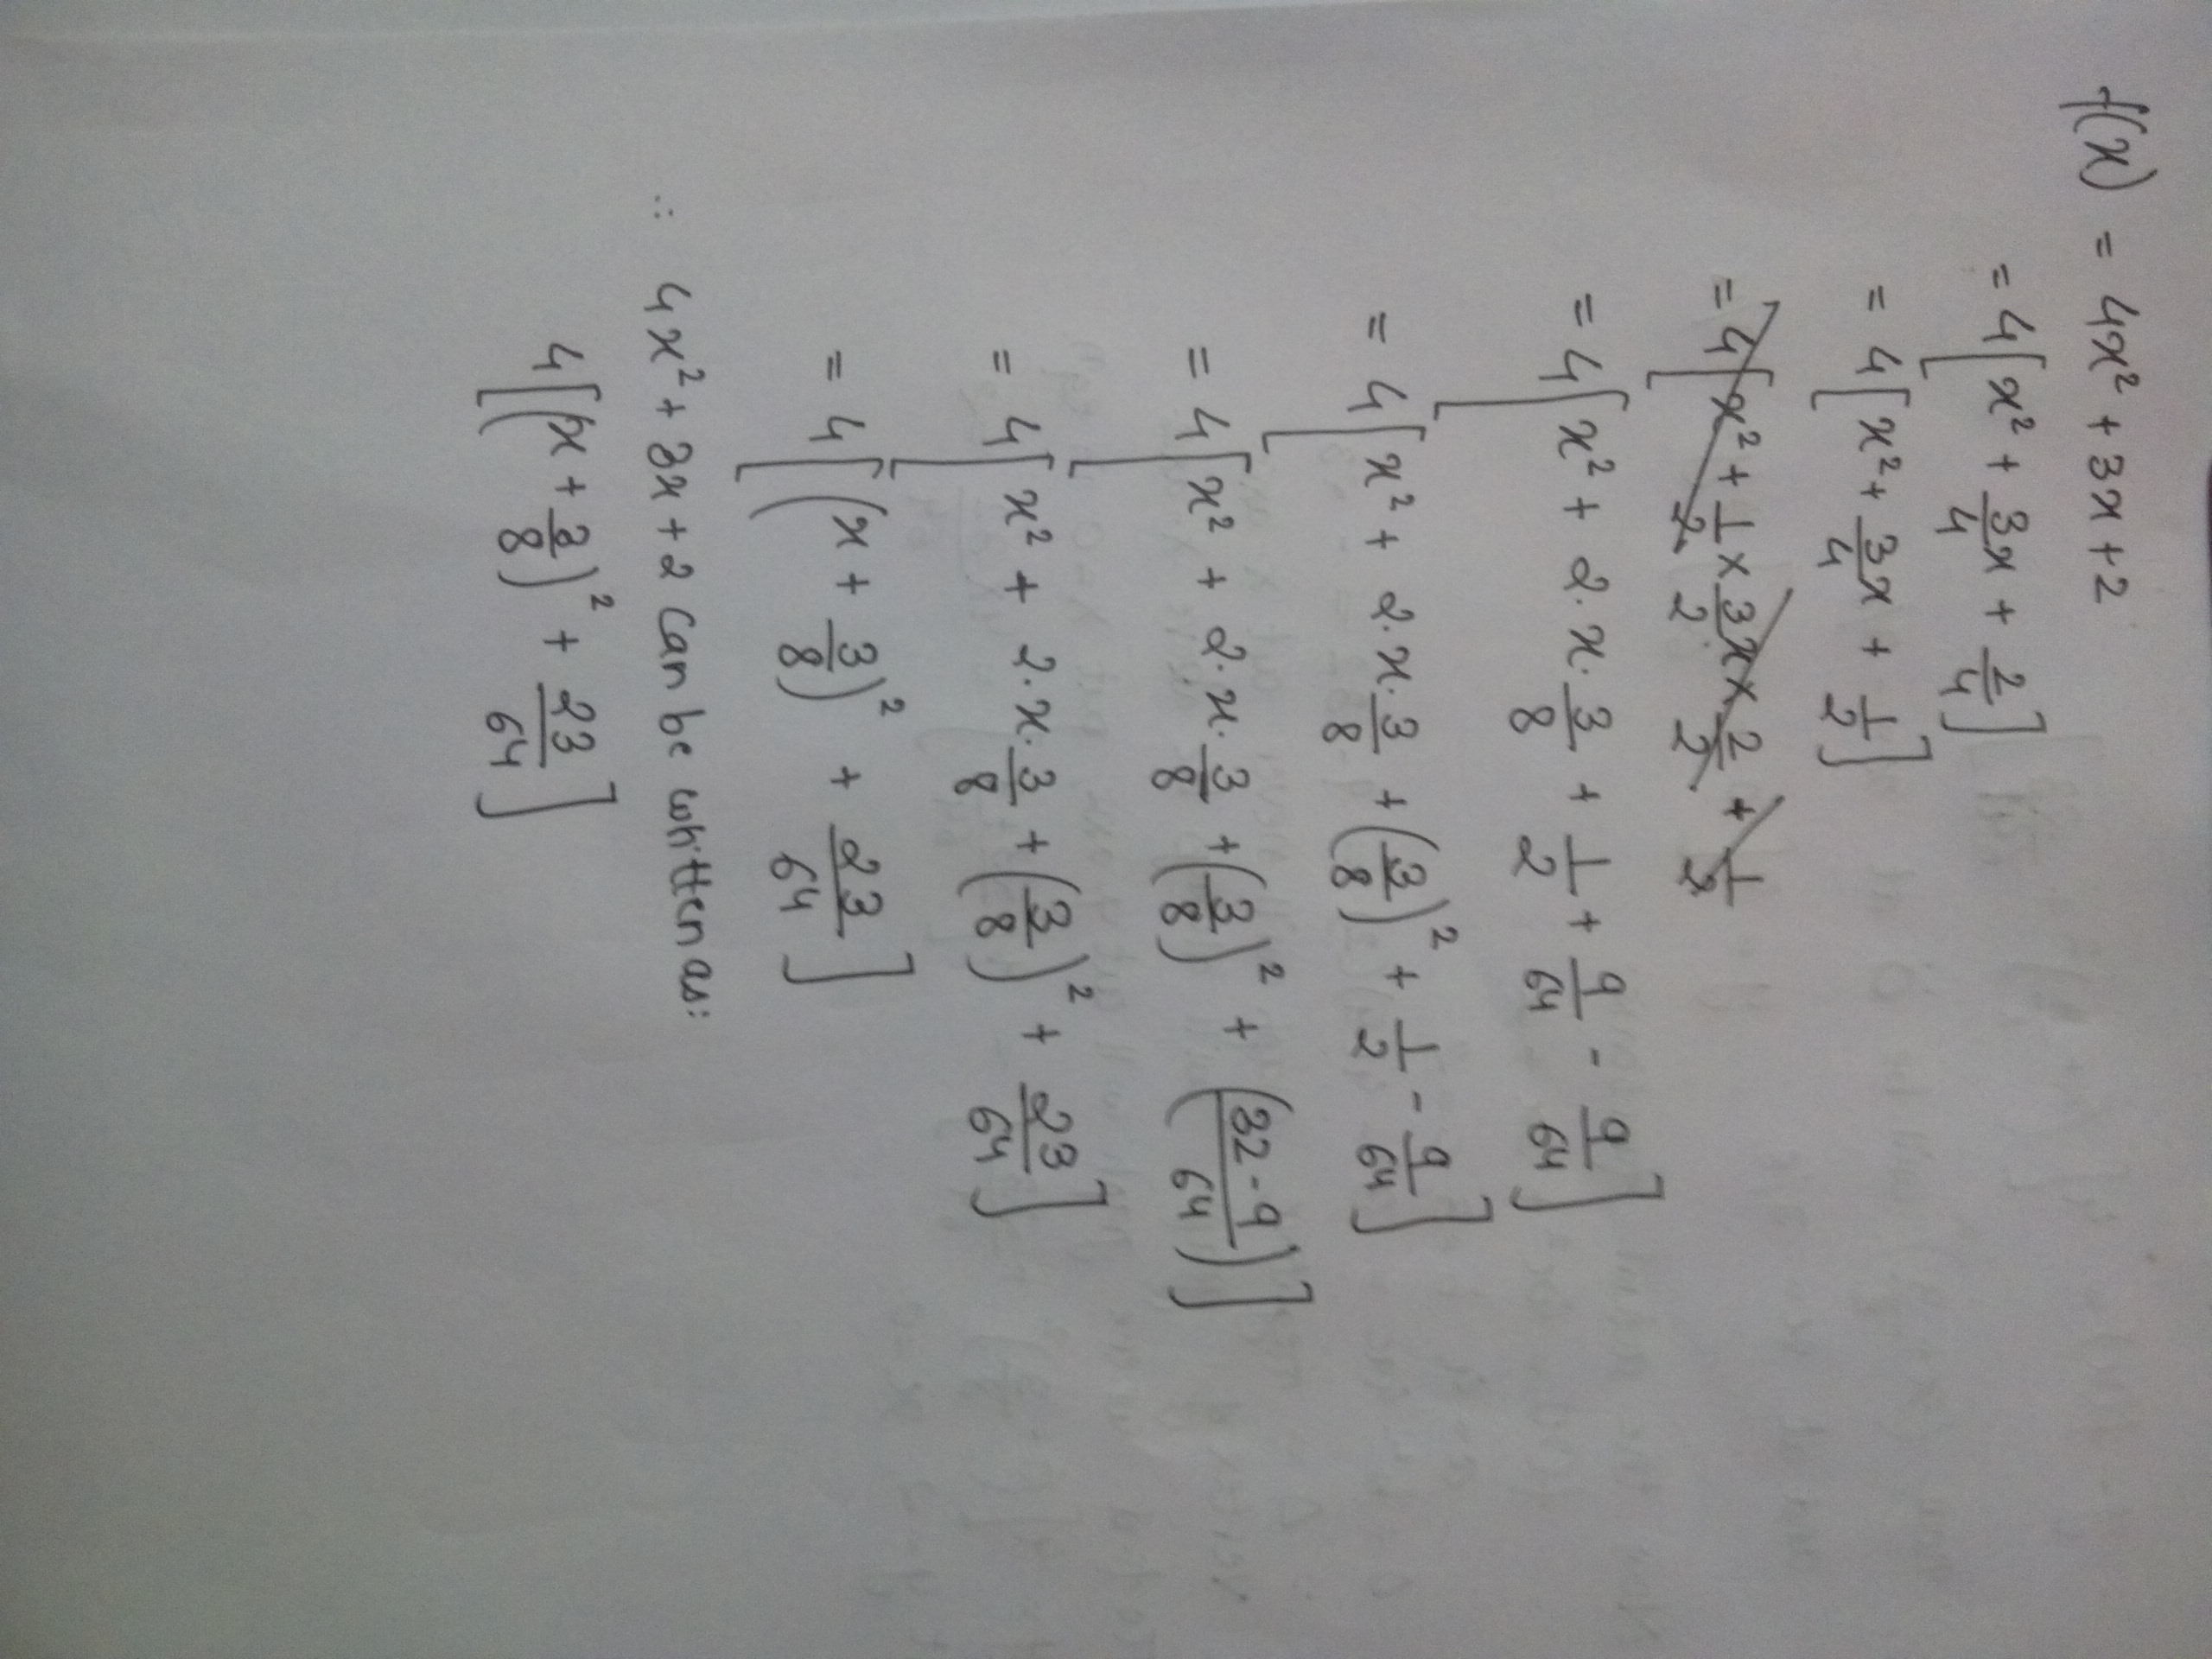 f(x) = 4x² + 3x + 2
= 4[x² + 3/4 x + 2/4]
= 4[x² + 3/4 x + 1/2]
= 4[x² + 2·x·3/8 + 1/2 + 9/64 - 9/64]
= 4[x² + 2·x·3/8 + (3/8)² + 1/2 - 9/64]
= 4[x² + 2·x·3/8 + (3/8)² + (32-9/64)]
= 4[x² + 2·x·3/8 + (3/8)² + 23/64]
= 4[(x + 3/8)² + 23/64]
∴ 4x² + 3x + 2 can be written as:
4[(x + 3/8)² + 23/64]